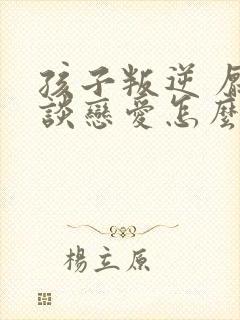 孩子叛逆
談戀愛怎麼
楊立原